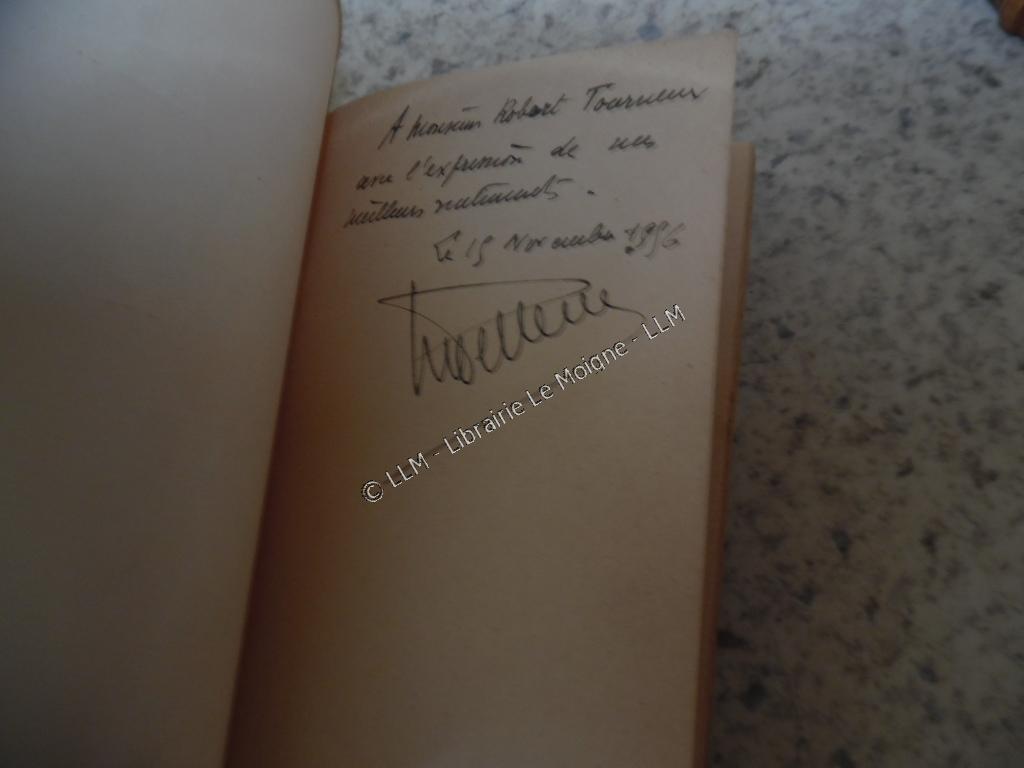 A Monsieur Robert Tourneux
avec l'expression de mes
meilleurs sentiments.
Le 15 Novembre 1956
© LLM - Librairie Le Moigne - LLM